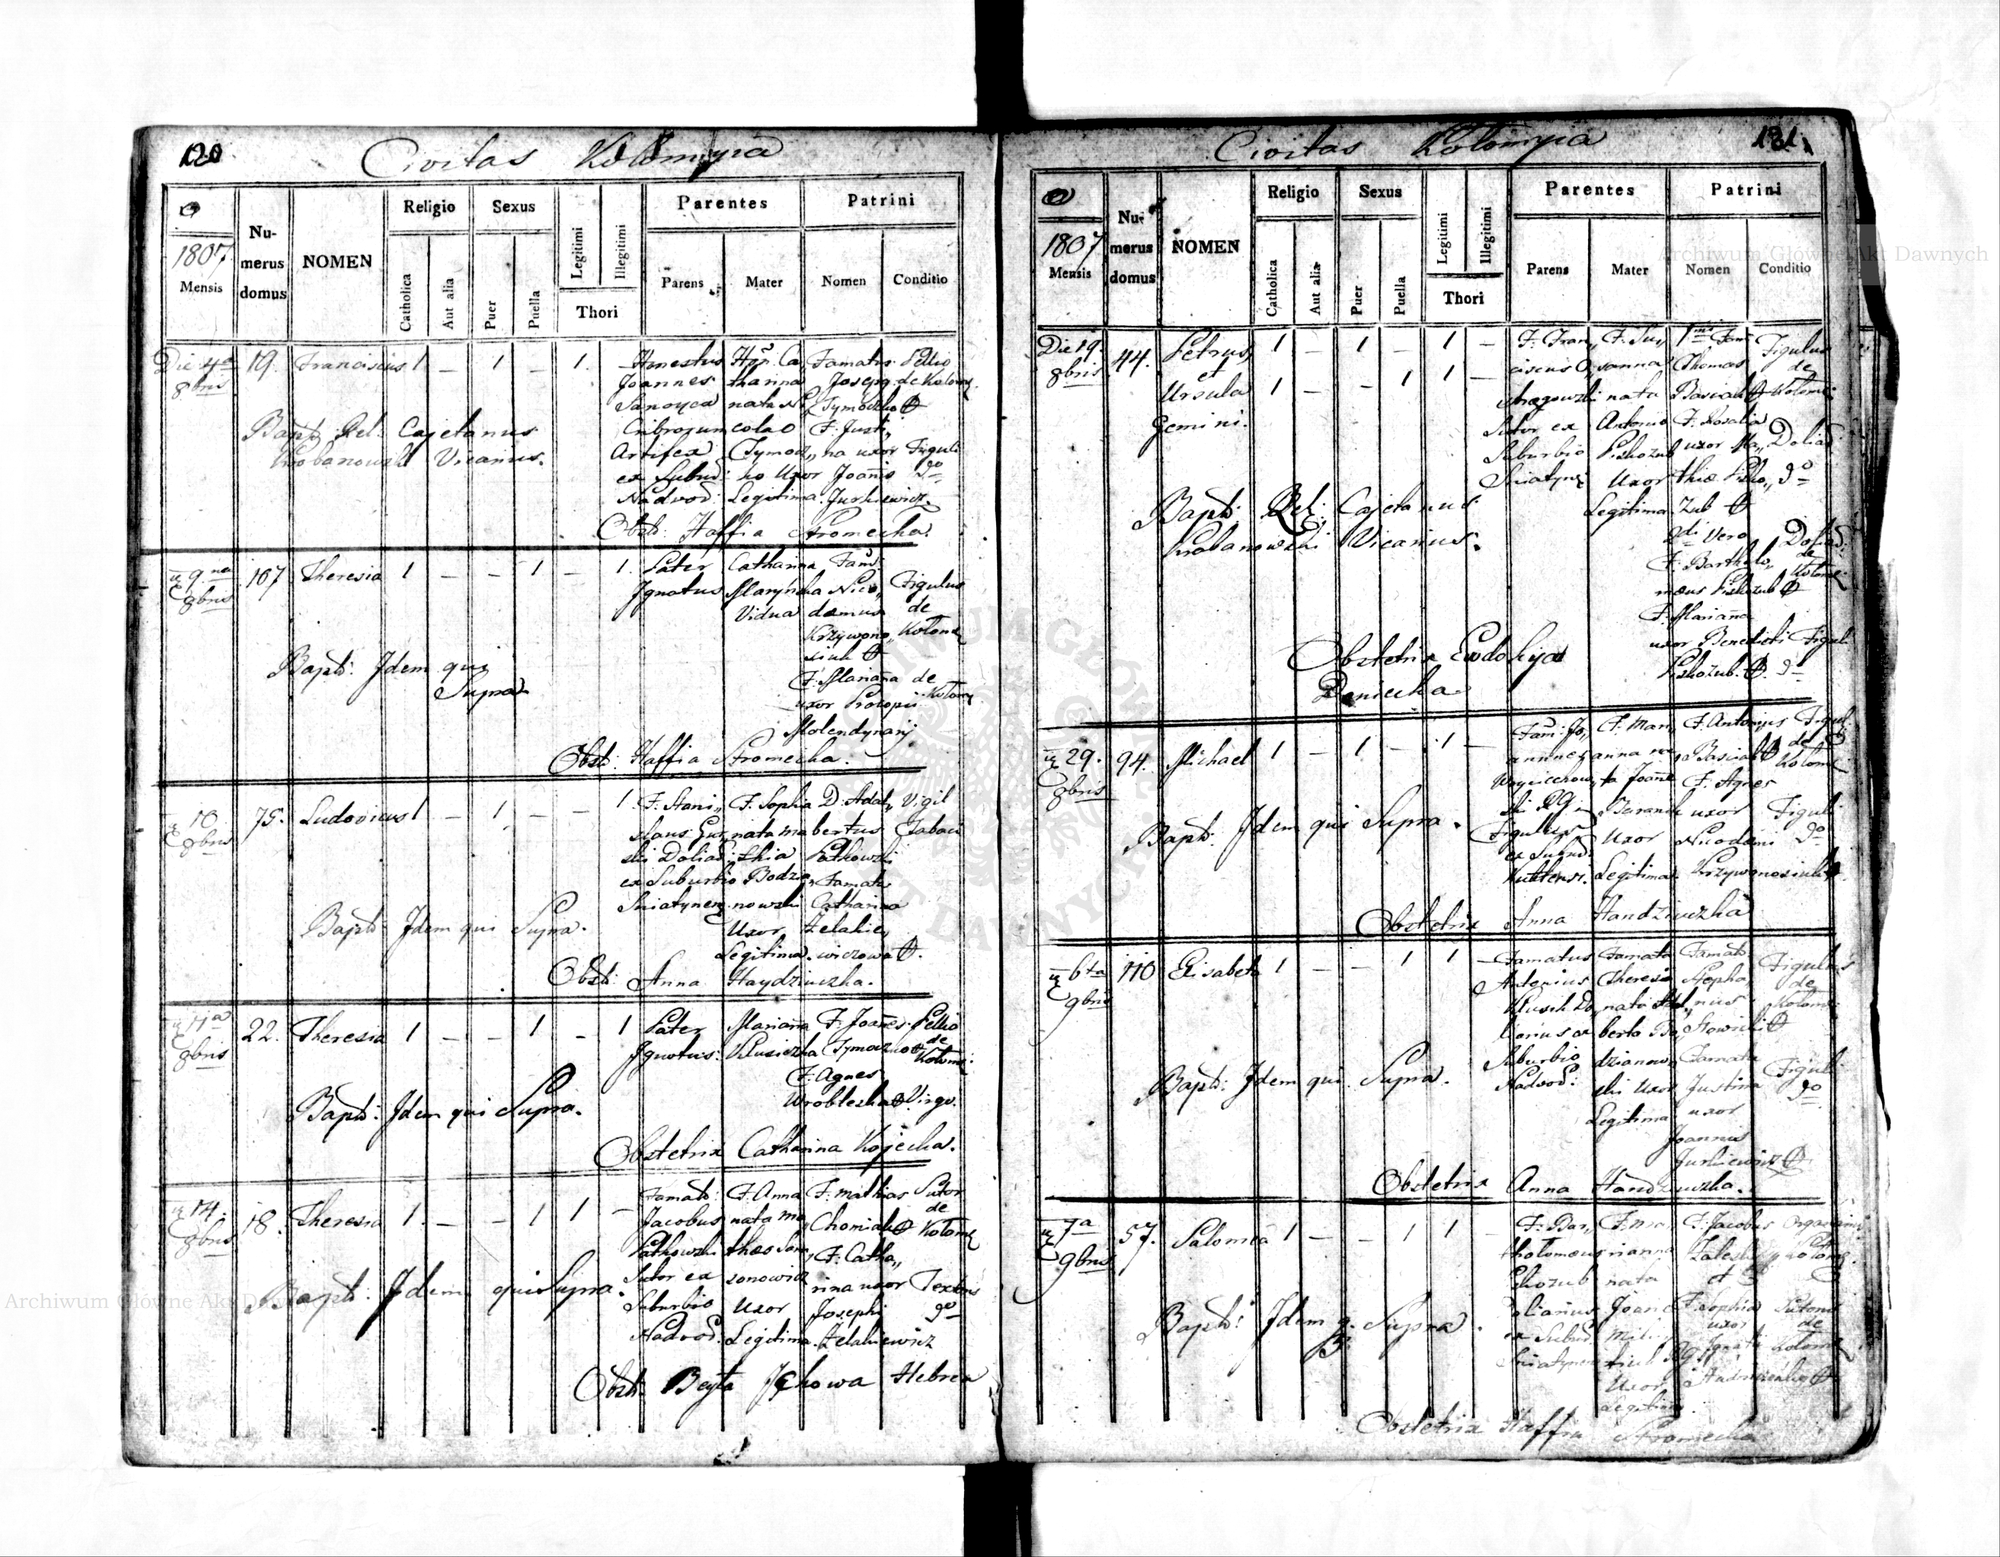 120
Civitas Kołomyia
1807
Mensis
Nu-
merus
domus
NOMEN
Religio
Catholica
Aut alia
Sexus
Puer
Puella
Legitimi
Illegitimi
Thori
Parentes
Parens
Mater
Patrini
Nomen
Conditio
Die 4ta
8bris
19.
Franciscus
1 – 1 – 1.
Honestus
Joannes
Sanoyca
Cribrorum
Artifex
ex Suburb:
Nadvor:
Hon: Ca
tharina
nata Ni
colao
Tymocz„
ko Uxor
Legitima
Famatus
Joseph
Tymoczko
F. Justi„
na uxor
Joannis
Jurkiewicz
Pellio
de Kołom:
Figuli
do
Bapt: Rel: Cajetanus
Chobanowski Vicarius.
Obst: Haffia Stromecka.
9na
8bris
107
Theresia
1 – – 1 – 1.
Pater
Ignotus
Catharina
Vidua
Fam:
Nico„
demus
Krzywono„
siuk
F. Marianna
uxor Procopii
Molendynarij
Figulus
de
Kołom:
de
Kołom:
Bapt: Idem qui
Supra
Obst: Haffia Stromecka.
10
8bris
75.
Ludovicus
1 – 1 – – 1.
F. Stani„
slaus Gur„
ski Doliad:
ex Suburbio
Sniatynen:
F. Sophia
nata Ma
thia
Bodzia„
nowski
Uxor
Legitima
D. Adal„
bertus
Patkowski
Famata
Catharina
Zelakie„
wiczowa
Vigil
Tabaci
Bapt: Idem qui Supra.
Obst: Anna Haydziuczka.
11a
8bris
22.
Theresia
1 – – 1 – 1
Pater
Ignotus:
Marianna
Klusiczka
F. Joannes
Tymoczko
F. Agnes
Wrobleska
Pellio
de
Kołom:
Virgo.
Bapt: Idem qui Supra.
Obstetrix Catharina Kojecka.
14.
8bris
18.
Theresia
1. – – 1 1 –
Famat:
Jacobus
Patkowski
Sutor ex
Suburbio
Nadvor:
F. Anna
nata Ma„
thæo Sam„
sonowicz
Uxor
Legitima.
F. Mathias
Chomiak
F. Catha„
rina uxor
Josephi
Zelakiewicz
Sutor
de
Kołom:
Textoris
do
Bapt: Idem qui Supra.
Obst: Beyła Jckowa Hebrea
131.
Civitas Kołomyia
1807
Mensis
Nu-
merus
domus
NOMEN
Religio
Catholica
Aut alia
Sexus
Puer
Puella
Legitimi
Illegitimi
Thori
Parentes
Parens
Mater
Patrini
Nomen
Conditio
Die 19.
8bris
44.
Petrus
et
Ursula
Gemini.
1 – 1 – 1 –
1 – – 1 1 –
F. Fran„
ciscus
Sutor ex
Suburbio
Sniatyn:
F. Su„
sanna
nata
Antonio
Piskozub
Uxor
Legitima
1mi Fam:
Thomas
Basiak
F. Rosalia
uxor Ma„
thiæ Pisko„
zub
2di Vero
F. Bartholo„
mæus Piskozub
F. Marianna
uxor Benedicti
Piskozub.
Figulus
de
Kołom:
Doliad:
do
Doliad:
de
Kołom:
Figuli
do
Bapt: Rel: Cajetanus
Chobanowski Vicarius.
Obstetrix Eudokya
Daniecka
29.
8bris
94.
Michael
1 – 1 – 1 –
Fam: Jo„
annnes
Woyciechow„
ski
Figulus
ex Suburb:
Kuttens.
F. Mari„
anna na„
ta Joanne
Baran
Uxor
Legitima
F. Antonius
Basiak
F. Agnes
uxor
Nicodemi
Krzywonosiuk
Figul:
de
Kołom:
Figuli
do
Bapt: Idem qui Supra.
Obstetrix Anna Handziuczka
6ta
9bris
110
Elisabeta
1 – – 1 1 –
Famatus
Antonius
Klusik Do„
liarius ex
Suburbio
Nadvor:
Famata
Theresia
nata Adal„
berto Bo„
dzianow„
ski Uxor
Legitima
Famat:
Stepha„
nus
Słowicki
Famata
Justina
uxor
Joannis
Jurkiewicz
Figulus
de
Kołom:
Figuli
do
Bapt: Idem qui Supra.
Obstetrix Anna Handziuczka.
7a
9bris
57.
Salomea
1 – – 1 1 –
F. Bar„
tholomeus
Piskozub
Doliarius
ex Suburb:
Sniatynen:
F. Ma„
rianna
nata
Joane
Uxor
Legitima
F. Jacobus
Zaleski
et
F. Sophia
uxor
Ignatii
Organarius
Kołom:
Sutoris
de
Kołom:
Bapt: Idem q. Supra.
Obstetrix Haffia Stromecka
Archiwum Główne Akt Dawnych
Archiwum Główne Akt Dawnych
ARCHIWUM GŁÓWNE AKT DAWNYCH